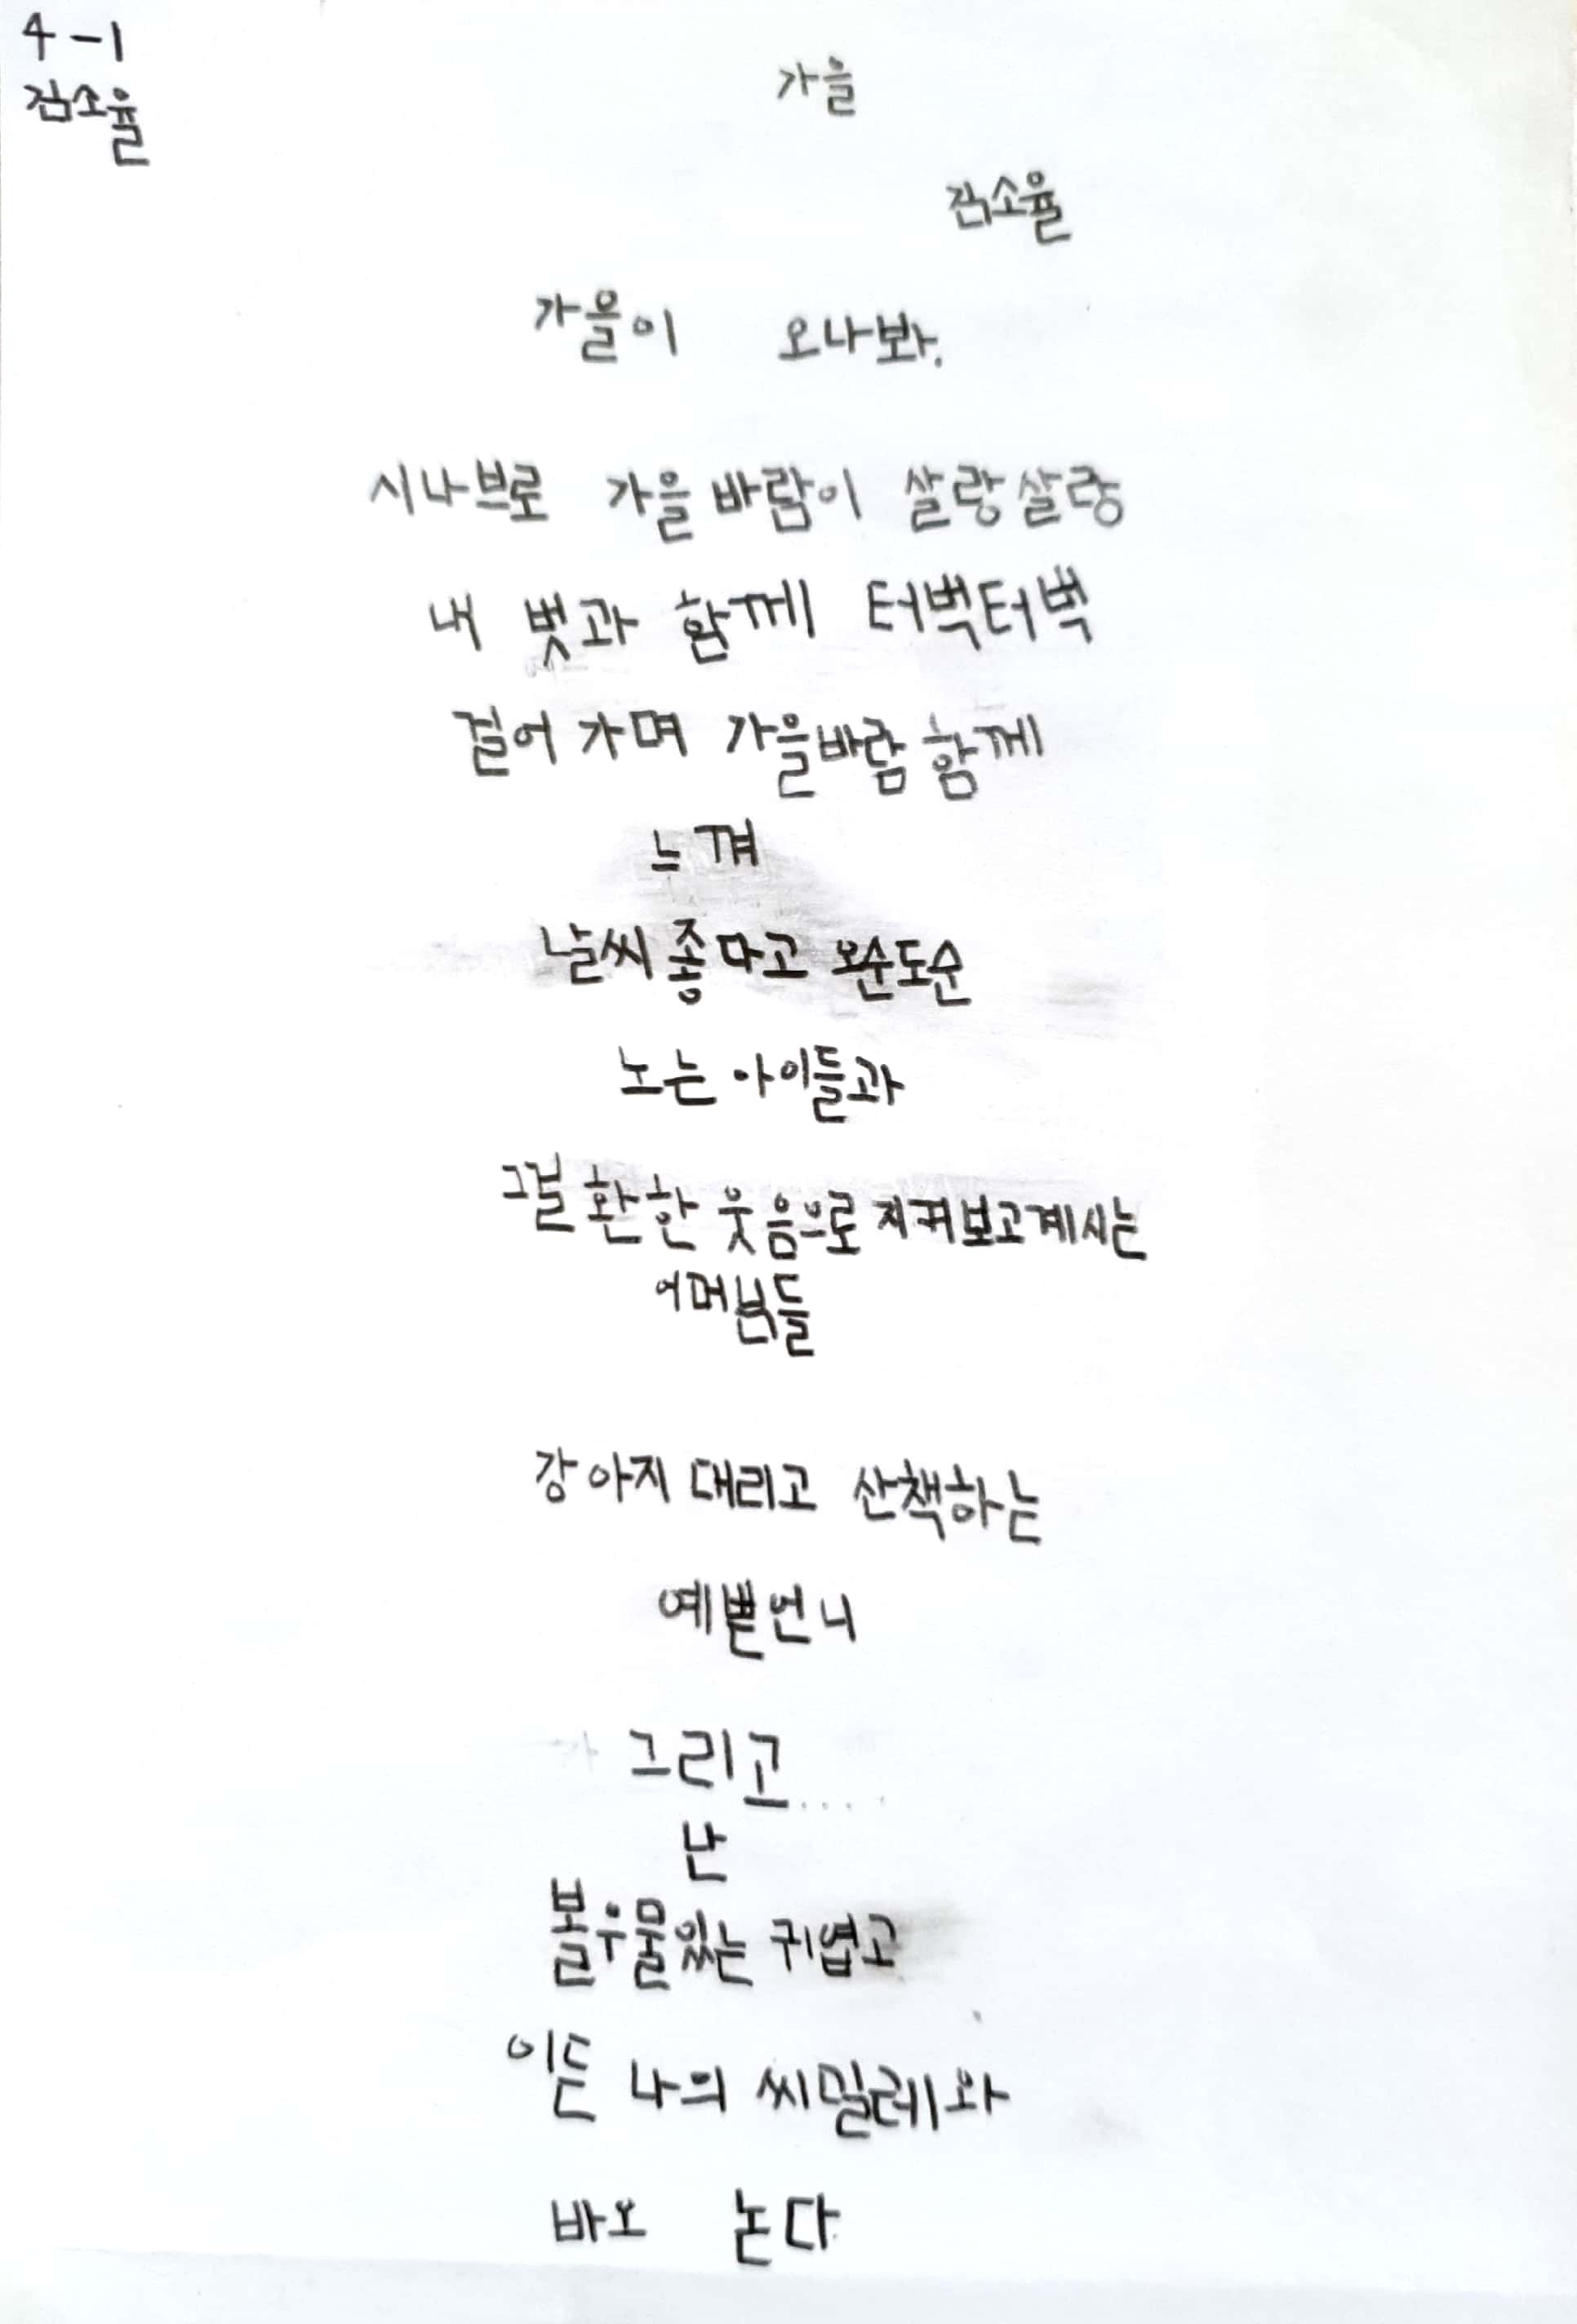 4-1
김소율
가을
김소율
가을이 오나봐.
시나브로 가을 바람이 살랑살랑
내 벗과 함께 터벅터벅
걸어 가며 가을바람 함께
느껴
날씨 좋다고 오순도순
노는 아이들과
그걸 환한 웃음으로 지켜보고계시는
어머님들
강아지 대리고 산책하는
예쁜언니
그리고....
난
볼우물있는 귀엽고
이든 나의 씨밀레와
바오 논다